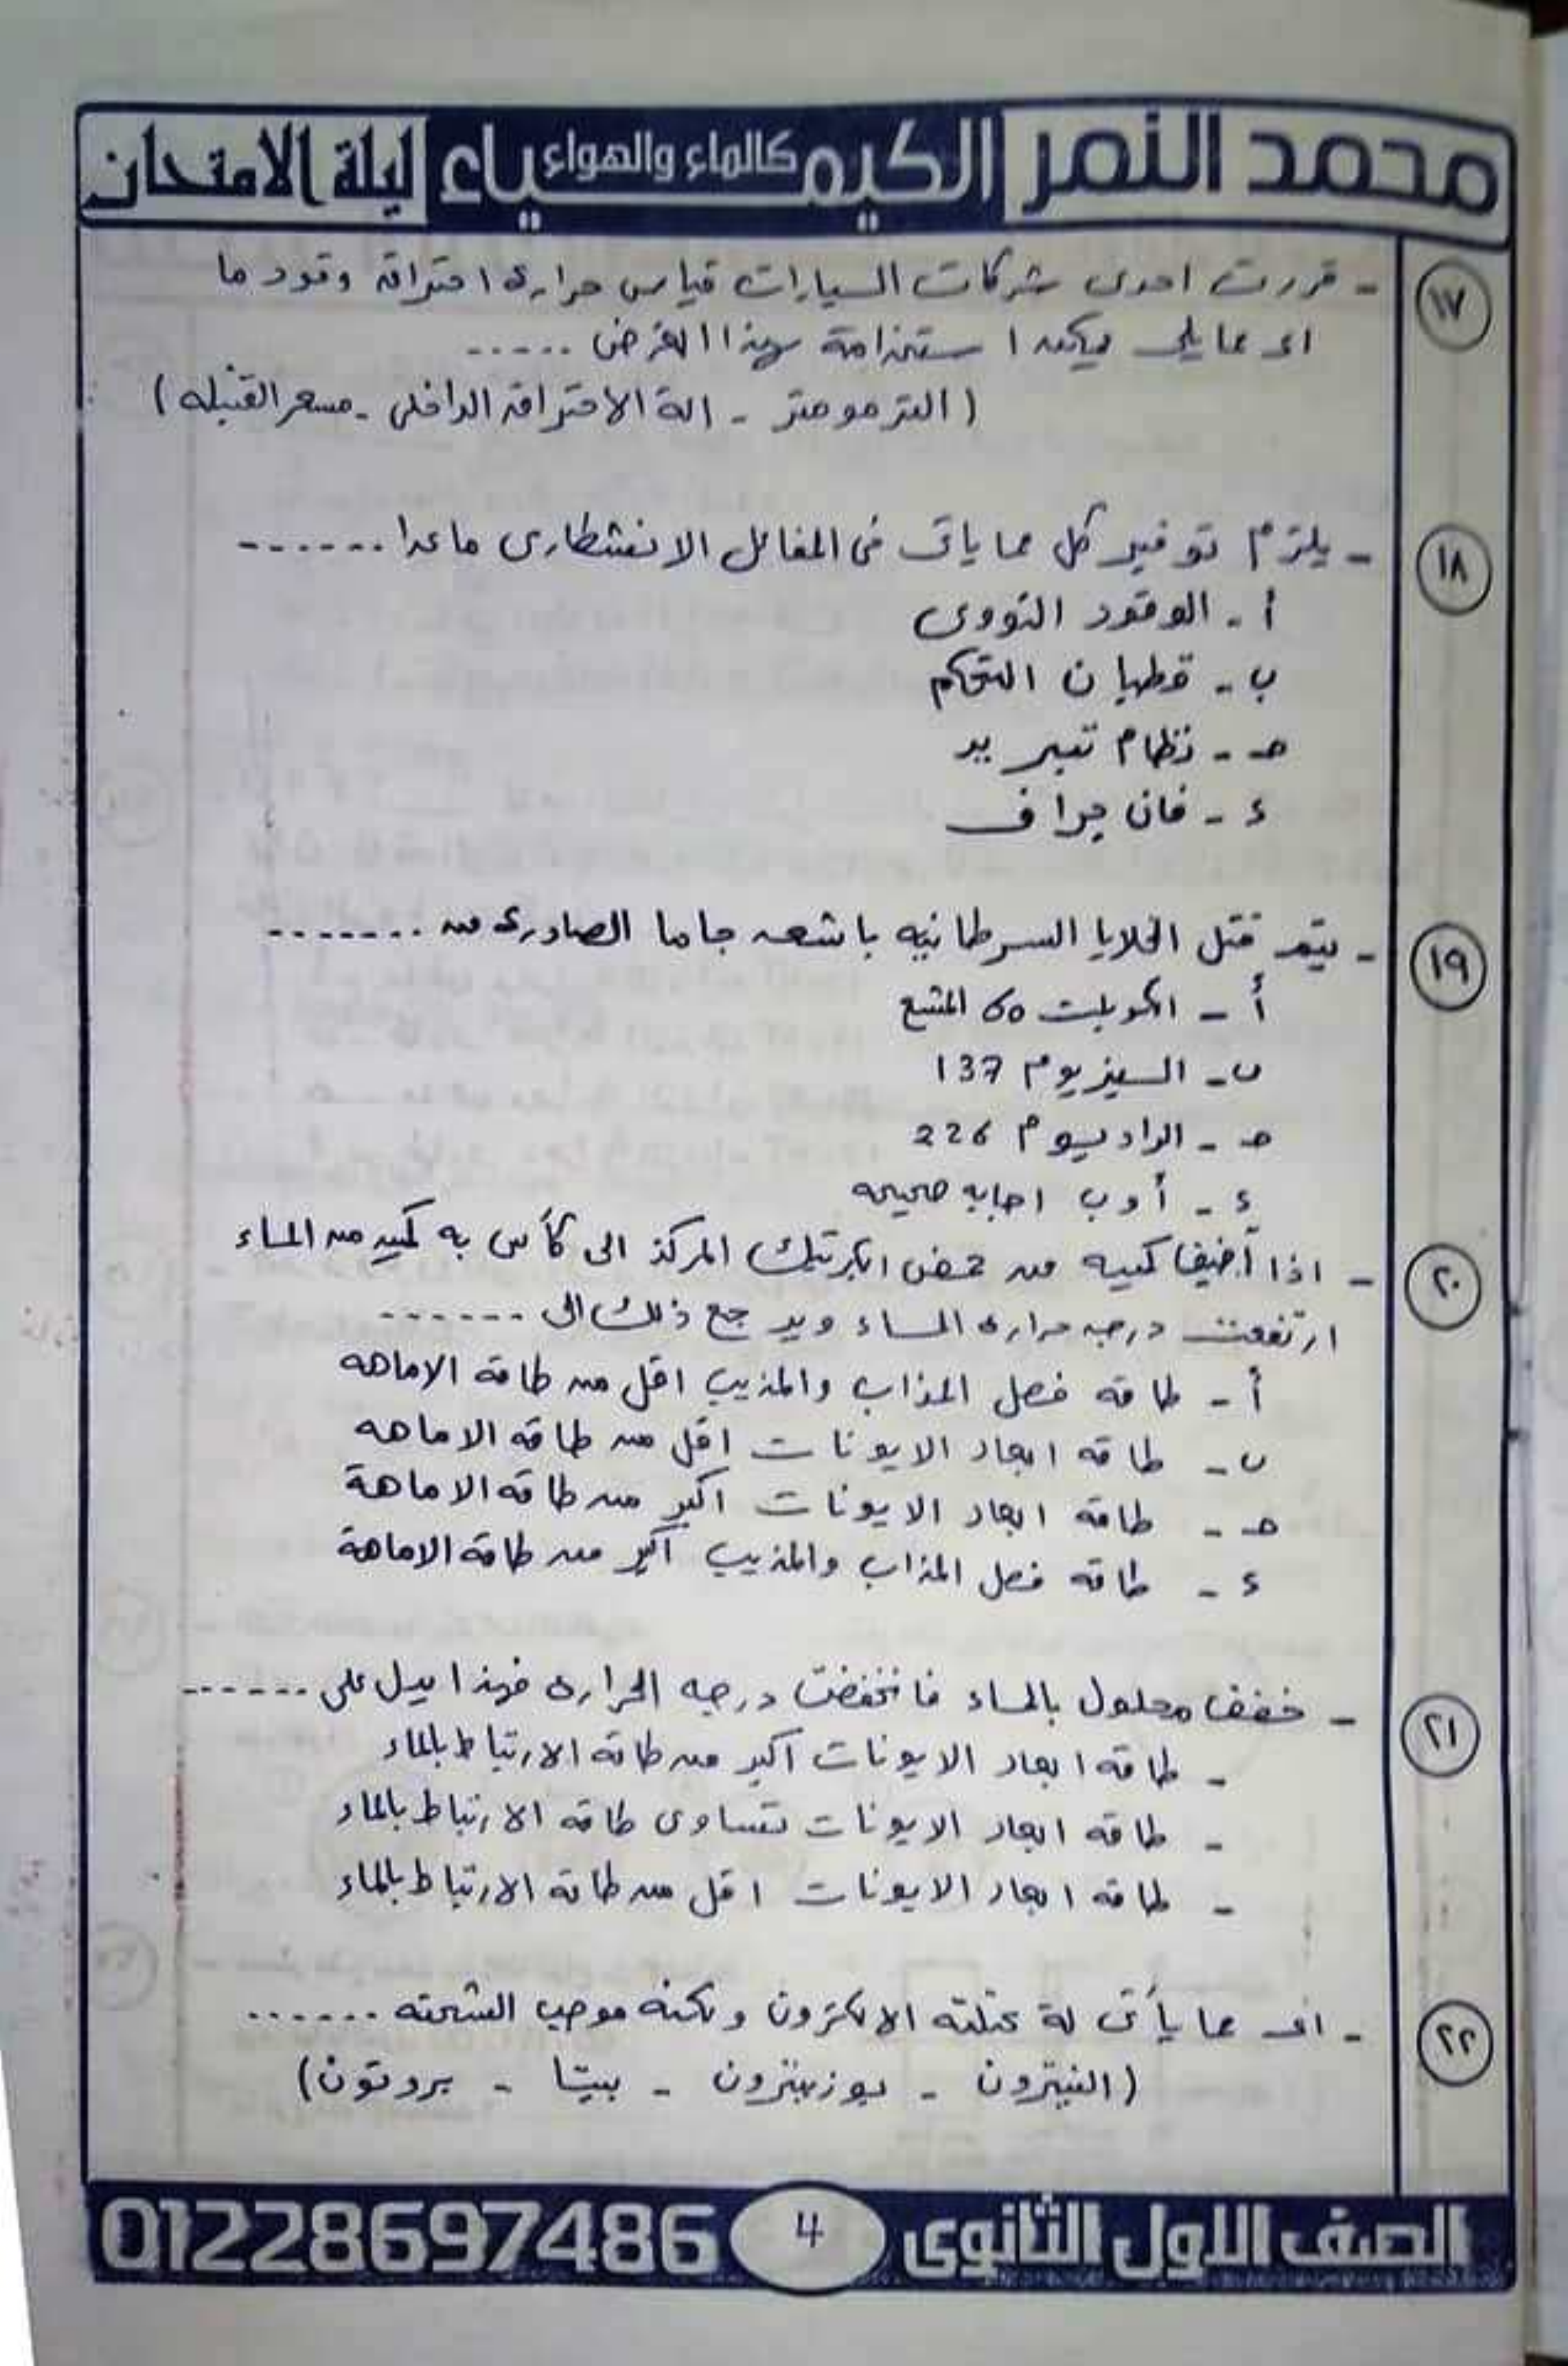 محمد النمر الكيمياء كالماء والهواء ليلة الامتحان
١٧ - قررت احدى شركات السيارات قياس حرارة احتراق وقود ما
اى مما يلى يمكن استخدامة لهذا الغرض .....
(الترمومتر - الة الاحتراق الداخلى - مسعر القنبله)
١٨ - يلزم توفير كل مما ياتى فى المفاعل الانشطارى ماعدا ......
أ - الوقود النووى
ب - قضبان التحكم
حـ - نظام تبريد
ء - فان جراف
١٩ - يتم قتل الخلايا السرطانيه باشعه جاما الصادرة من .......
أ - الكوبلت 60 المشع
ب - السيزيوم 137
حـ - الراديوم 226
ء - أ و ب اجابه صحيحه
٢٠ - اذا أضيف كميه من حمض الكبرتيك المركز الى كأس به كميه من الماء
ارتفعت درجه حرارة الماء ويرجع ذلك الى .......
أ - طاقه فصل المذاب والمذيب اقل من طاقة الاماهه
ب - طاقه ابعاد الايونات اقل من طاقه الاماهه
حـ - طاقه ابعاد الايونات اكبر من طاقه الاماهة
ء - طاقه فصل المذاب والمذيب اكبر من طاقة الاماهة
٢١ - خفف محلول بالماء فانخفضت درجه الحرارة فهذا يدل على ......
- طاقه ابعاد الايونات اكبر من طاقه الارتباط بالماء
- طاقه ابعاد الايونات تساوى طاقه الارتباط بالماء
- طاقه ابعاد الايونات اقل من طاقه الارتباط بالماء
٢٢ - اى مما يأتى لة كتلته الالكترون ولكنه موجب الشحنه ......
(النيترون - بوزيترون - بيتا - بروتون)
الصف الاول الثانوى 4 01228697486